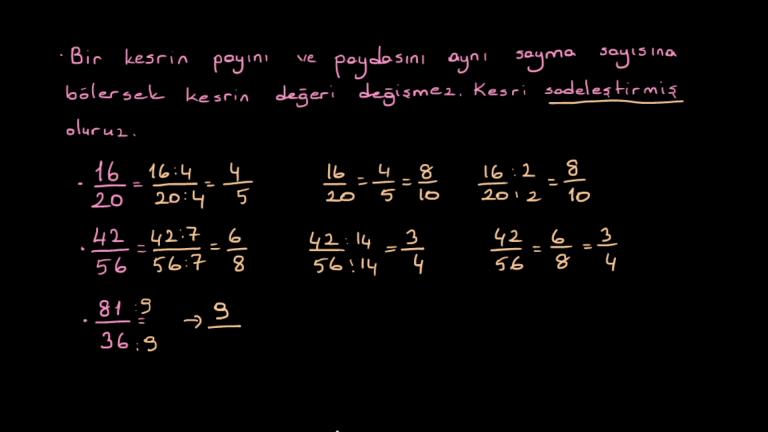 · Bir kesrin payını ve paydasını aynı sayma sayısına
bölersek kesrin değeri değişmez. Kesri sadeleştirmiş
oluruz.
· 16/20 = 16:4/20:4 = 4/5   16/20 = 4/5 = 8/10   16:2/20:2 = 8/10
· 42/56 = 42:7/56:7 = 6/8   42:14/56:14 = 3/4   42/56 = 6/8 = 3/4
· 81:9/36:9 = → 9/